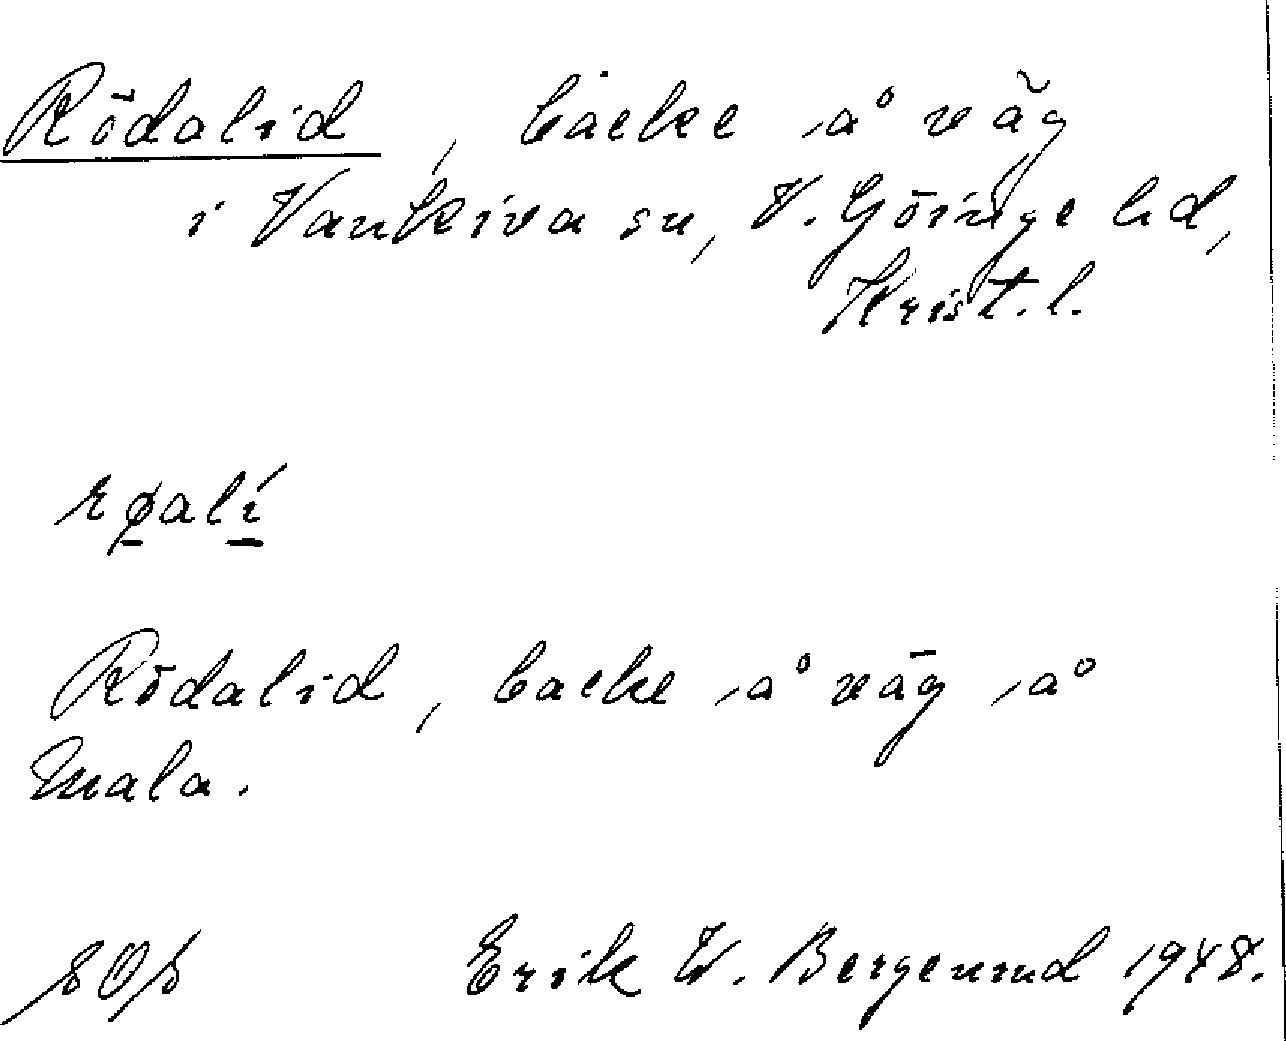 Rödalid, backe å väg
i Vankiva sn, V. Göinge hd,
Krist. l.
rø̱alí̱
Rödalid, backe å väg å
Mala.
Erik W. Bergerund 1948.